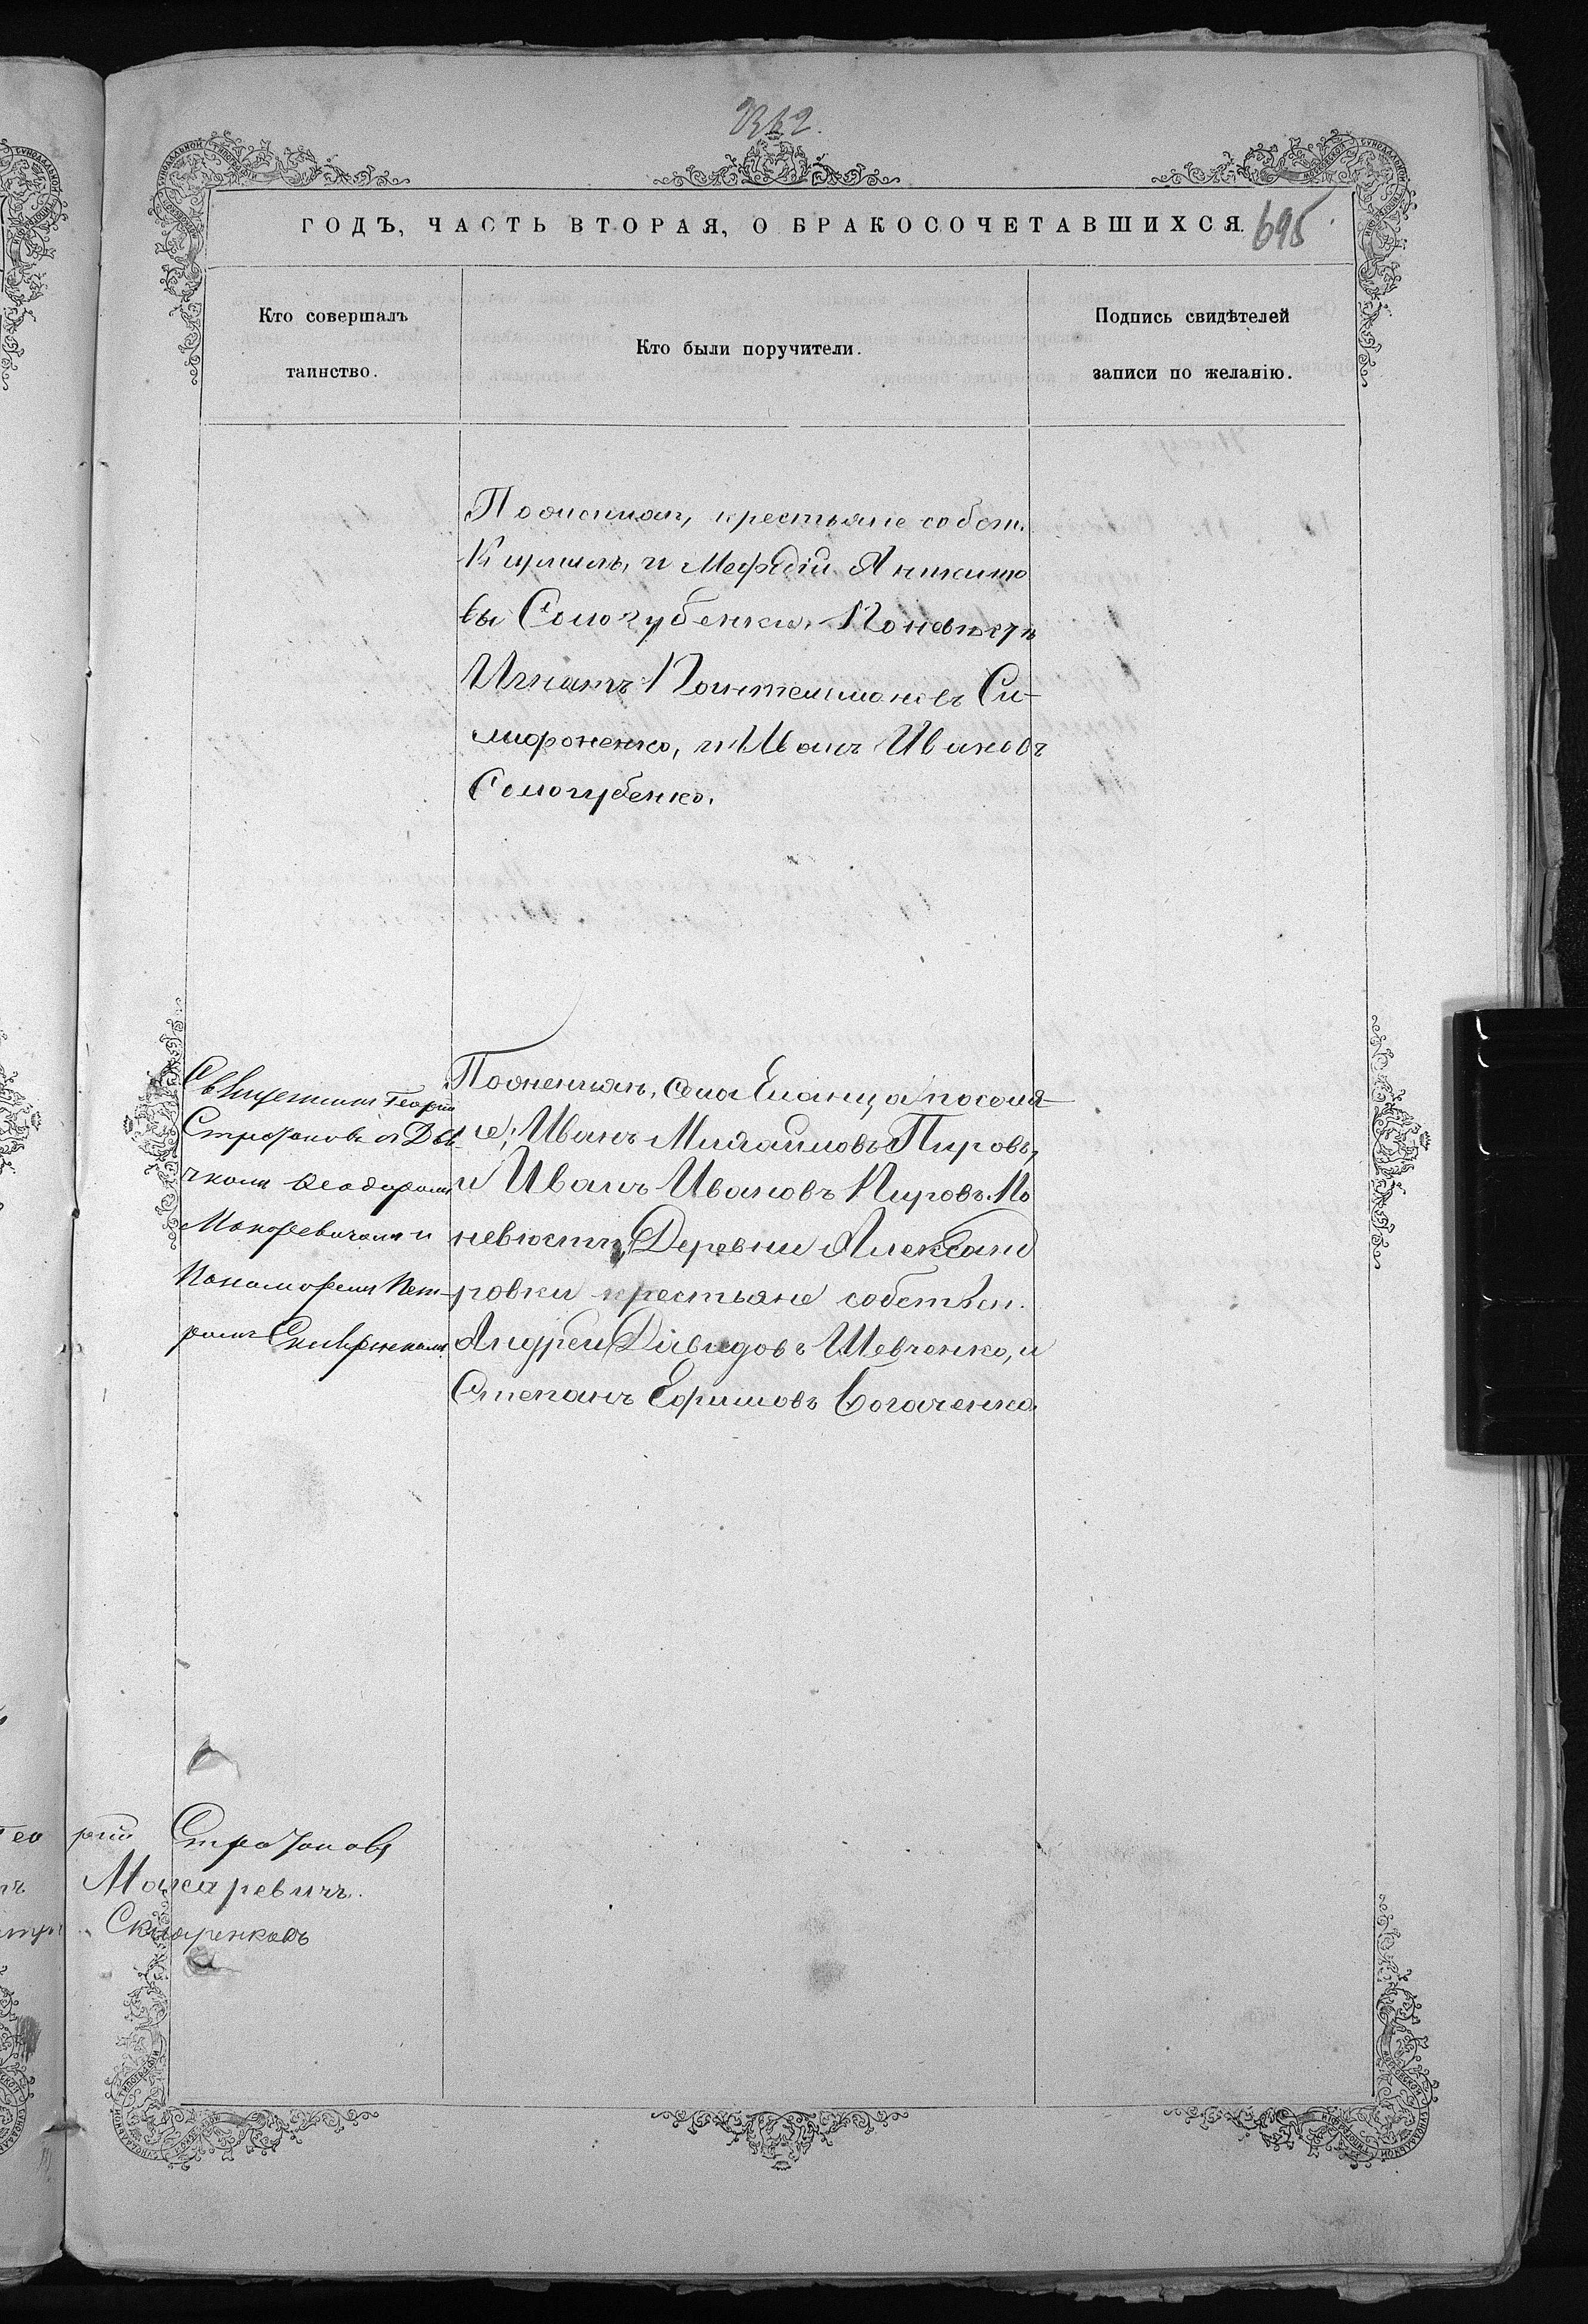 695
ГОДЪ, ЧАСТЬ ВТОРАЯ, О БРАКОСОЧЕТАВШИХСЯ.
Кто совершалъ
таинство.
Кто были поручители.
Подпись свидѣтелей
записи по желанію.
По женихѣ, крестьяне собст.
Кирилъ, и Мефодій Аникито
вы Сологубенки. По невѣстѣ
Игнатъ Пантелимоновъ Си-
мироненко, и Иванъ Ивановъ
Сологубенко.
Священникъ Георгій
Стратоновъ съ Дья
чкомъ Ѳеодоромъ
Макаревичемъ и
Пономаремъ Пет-
ромъ
По женихѣ, села Еланца поселя-
не; Иванъ Михаиловъ Пировъ,
и Иванъ Ивановъ Пировъ. По
невѣстѣ, Деревни Александ
ровки крестьяне собствен.
Андрей Давидовъ Шевченко, и
Степанъ Ефимовъ Богаченко.
Гео ргій Стратоновъ
Макаревичъ.
Скляренковъ